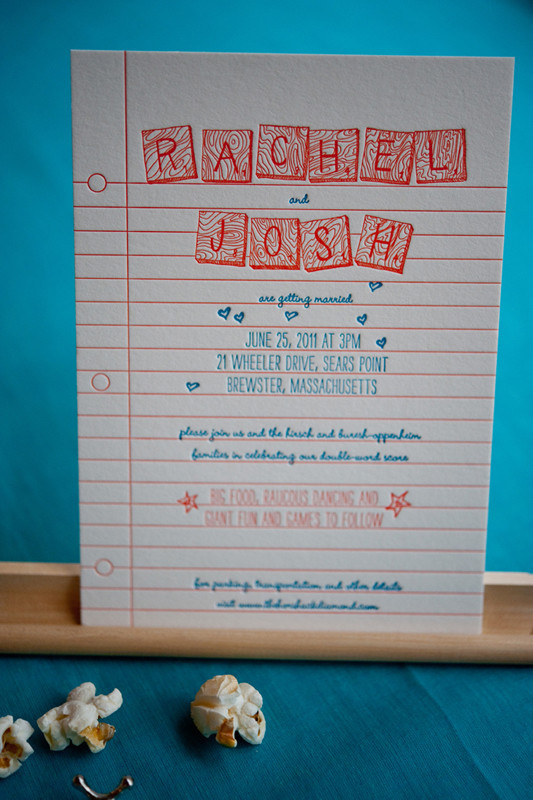 RACHEL
and
JOSH
are getting married
JUNE 25, 2011 AT 3PM
21 WHEELER DRIVE, SEARS POINT
BREWSTER, MASSACHUSETTS
please join us and the hirsch and buresh-oppenheim
families in celebrating our double-word score
BIG FOOD, RAUCOUS DANCING AND
GIANT FUN AND GAMES TO FOLLOW
for parking, transportation and other details
visit